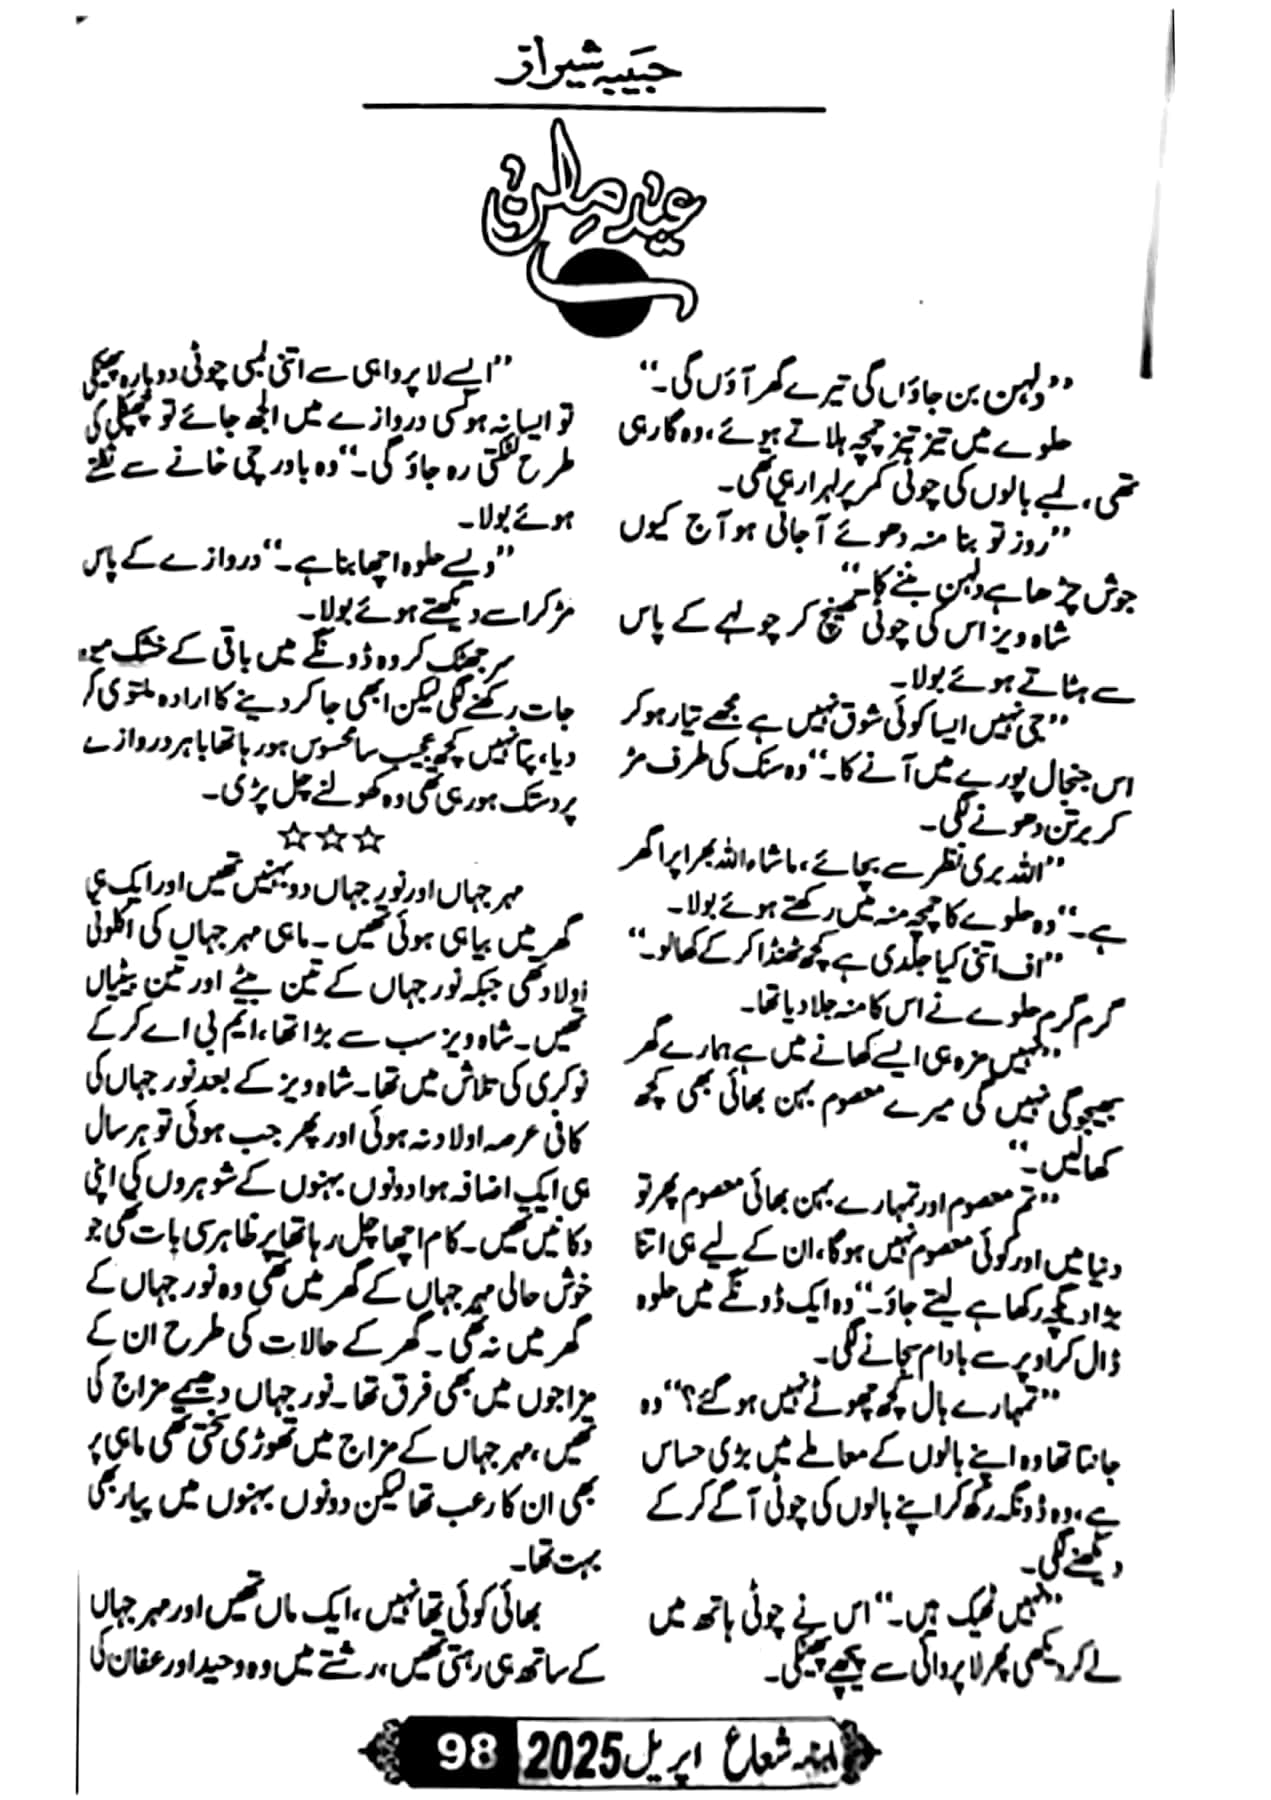 حبیبہ شیراز
عید ملن
”دلہن بن جاؤں گی تیرے گھر آؤں گی۔“
حلوے میں تیز تیز چمچہ ہلاتے ہوئے، وہ گا رہی
تھی، لمبے بالوں کی چوٹی کمر پر لہرا رہی تھی۔
”روز تو بنا منہ دھوئے آ جاتی ہو آج کیوں
جوش چڑھا ہے دلہن بننے کا۔“
شاہ ویز اس کی چوٹی کھینچ کر چولہے کے پاس
سے ہٹاتے ہوئے بولا۔
”جی نہیں ایسا کوئی شوق نہیں ہے مجھے تیار ہو کر
اس جنجال پورے میں آنے کا۔“ وہ سنک کی طرف مڑ
کر برتن دھونے لگی۔
”اللہ بری نظر سے بچائے، ماشاءاللہ بھرا پرا گھر
ہے۔“ وہ حلوے کا چمچہ منہ میں رکھتے ہوئے بولا۔
”اف اتنی کیا جلدی ہے کچھ ٹھنڈا کر کے کھا لو۔“
گرم گرم حلوے نے اس کا منہ جلا دیا تھا۔
”نہیں مزہ ہی ایسے کھانے میں ہے ہمارے گھر
بھیجو گی نہیں کی میرے معصوم بہن بھائی بھی کچھ
کھا لیں۔“
”تم معصوم اور تمہارے بہن بھائی معصوم پھر تو
دنیا میں اور کوئی معصوم نہیں ہوگا، ان کے لیے ہی اتنا
بڑا دیگچہ رکھا ہے لیتے جاؤ۔“ وہ ایک ڈونگے میں حلوہ
ڈال کر اوپر سے بادام سجانے لگی۔
”تمہارے بال کچھ چھوٹے نہیں ہو گئے؟“ وہ
جانتا تھا وہ اپنے بالوں کے معاملے میں بڑی حساس
ہے، وہ ڈونگہ رکھ کر اپنے بالوں کی چوٹی آگے کر کے
دیکھنے لگی۔
”نہیں ٹھیک ہیں۔“ اس نے چوٹی ہاتھ میں
لے کر دیکھی پھر لاپروائی سے پیچھے پھینکی۔
”ایسے لاپرواہی سے اتنی لمبی چوٹی دوبارہ پھینکی
تو ایسا نہ ہو کسی دروازے میں الجھ جائے تو چھپکلی کی
طرح لٹکتی رہ جاؤ گی۔“ وہ باورچی خانے سے نکلتے
ہوئے بولا۔
”ویسے حلوہ اچھا بنا ہے۔“ دروازے کے پاس
مڑ کر اسے دیکھتے ہوئے بولا۔
سر جھٹک کر وہ ڈونگے میں باقی کے خشک میوہ
جات رکھنے لگی لیکن ابھی جا کر دینے کا ارادہ ملتوی کر
دیا، پتا نہیں کچھ عجیب سا محسوس ہو رہا تھا باہر دروازے
پر دستک ہو رہی تھی وہ کھولنے چل پڑی۔
☆☆☆
مہر جہاں اور نور جہاں دو بہنیں تھیں اور ایک ہی
گھر میں بیاہی ہوئی تھیں۔ ماہی مہر جہاں کی اکلوتی
اولاد تھی جبکہ نور جہاں کے تین بیٹے اور تین بیٹیاں
تھیں۔ شاہ ویز سب سے بڑا تھا، ایم بی اے کر کے
نوکری کی تلاش میں تھا۔ شاہ ویز کے بعد نور جہاں کی
کافی عرصہ اولاد نہ ہوئی اور پھر جب ہوئی تو ہر سال
ہی ایک اضافہ ہوا دونوں بہنوں کے شوہروں کی اپنی
دکانیں تھیں۔ کام اچھا چل رہا تھا پر ظاہر سی بات تھی جو
خوش حالی مہر جہاں کے گھر میں تھی وہ نور جہاں کے
گھر میں نہ تھی۔ گھر کے حالات کی طرح ان کے
مزاجوں میں بھی فرق تھا۔ نور جہاں دھیمے مزاج کی
تھیں، مہر جہاں کے مزاج میں تھوڑی سختی تھی ماہی پر
بھی ان کا رعب تھا لیکن دونوں بہنوں میں پیار بھی
بہت تھا۔
بھائی کوئی تھا نہیں، ایک ماں تھیں اور مہر جہاں
کے ساتھ ہی رہتی تھیں، رشتے میں وہ وحید اور عفان کی
ماہنامہ شعاع اپریل 2025 98